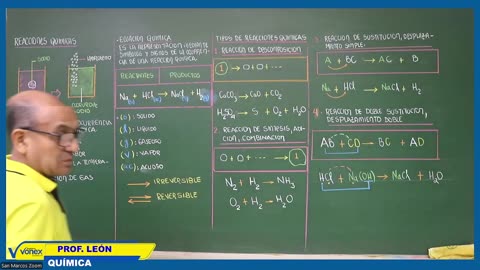 REACCIONES QUÍMICAS
SODIO
ECUACIÓN QUÍMICA
ES LA REPRESENTACIÓN
SÍMBOLOS Y SIGNOS DE LA OCURREN-
CIA DE UNA REACCIÓN QUÍMICA.
REACTANTES PRODUCTOS
Na + HCl → NaCl + H2
(s) : SÓLIDO
(l) : LÍQUIDO
(g) : GASEOSO
(v) : VAPOR
(ac) : ACUOSO
→ IRREVERSIBLE
REVERSIBLE
DE GAS
TIPOS DE REACCIONES QUÍMICAS
1. REACCIÓN DE DESCOMPOSICIÓN
1 → O + O + ...
CaCO3 → CaO + CO2
H2SO4 → S + O2 + H2O
2. REACCIÓN DE SÍNTESIS, ADI-
CIÓN, COMBINACIÓN
O + O + ... → 1
N2 + H2 → NH3
O2 + H2 → H2O
3. REACCIÓN DE SUSTITUCIÓN, DESPLAZA-
MIENTO SIMPLE:
A + BC → AC + B
Na + HCl → NaCl + H2
4. REACCIÓN DE DOBLE SUSTITUCIÓN,
DESPLAZAMIENTO DOBLE
AB + CD → BC + AD
HCl + Na(OH) → NaCl + H2O
Vonex
PROF. LEÓN
San Marcos Zoom
QUÍMICA